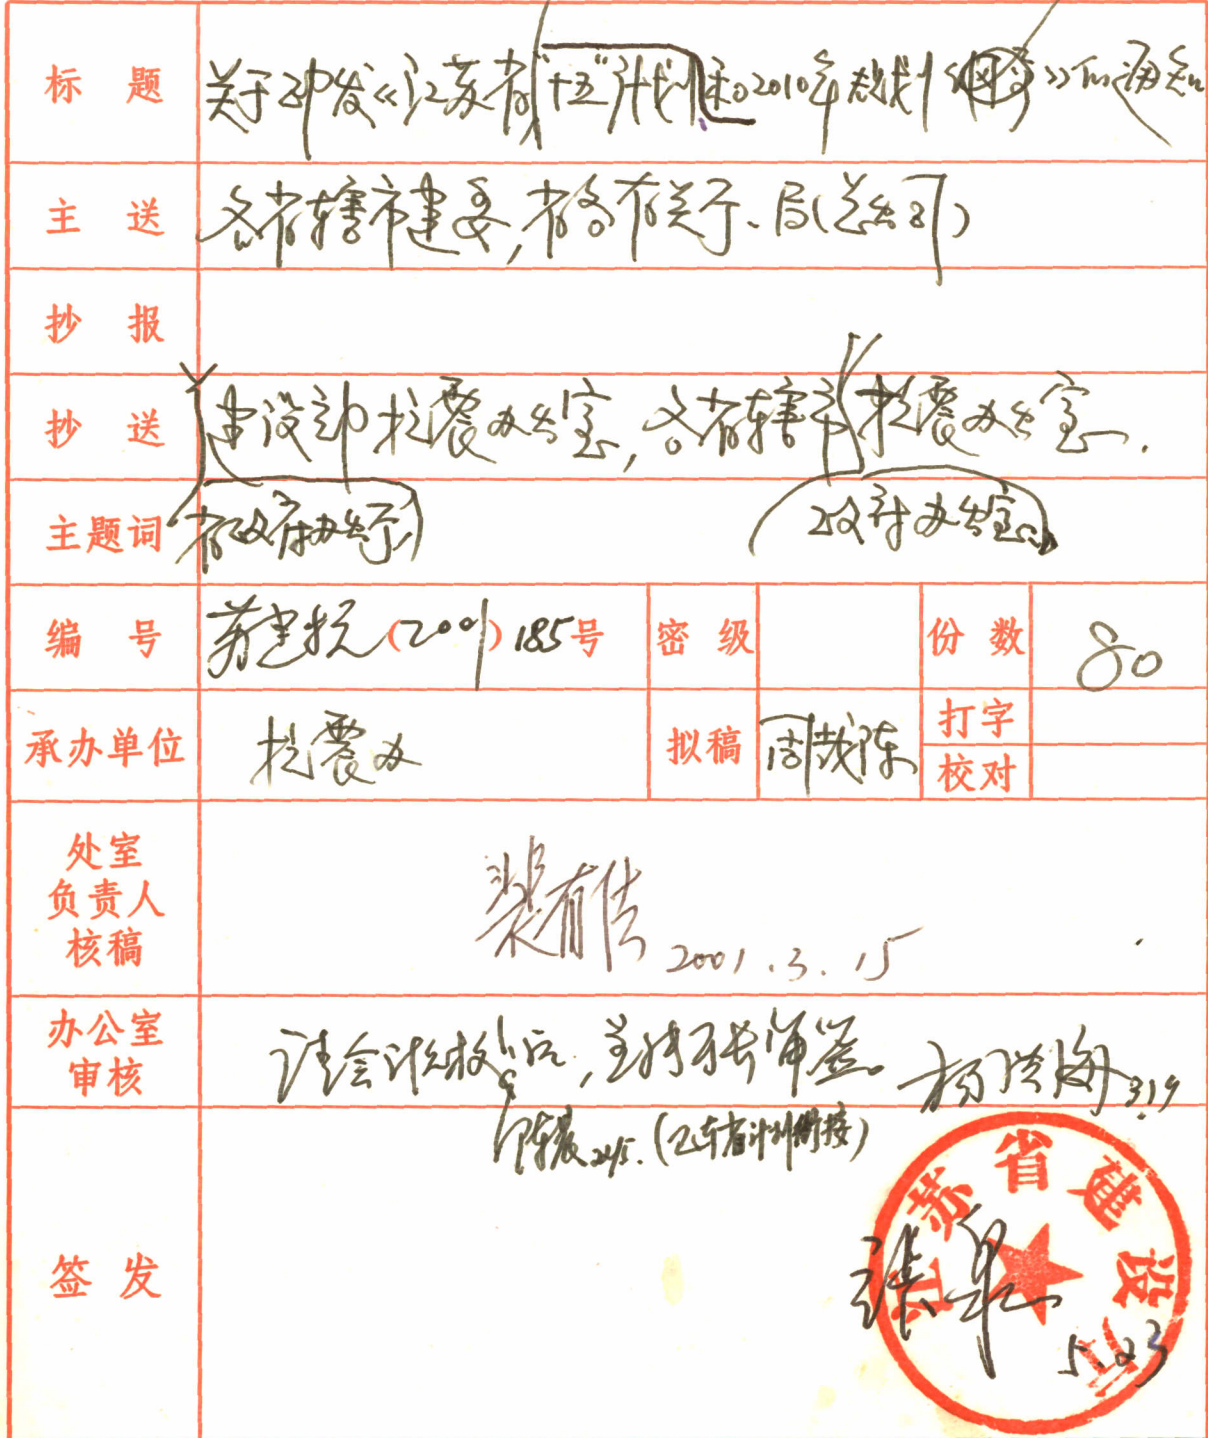 标题 关于印发《江苏省"十五"计划和2010年规划(纲要)》的通知
主送 各省辖市建委,省各有关厅、局(总公司)
抄报
抄送 建设部抗震办公室,各省辖市抗震办公室.
主题词 省政府办公厅 政府办公室
编号 苏建抗(2001)185号 密级 份数 80
承办单位 抗震办 拟稿 打字
校对
处室
负责人
核稿 2001.3.15
办公室
审核 请会计 后, 厅长审签。 杨洪海 3.19
(已与省计划衔接)
签发 5.23
江苏省建设厅